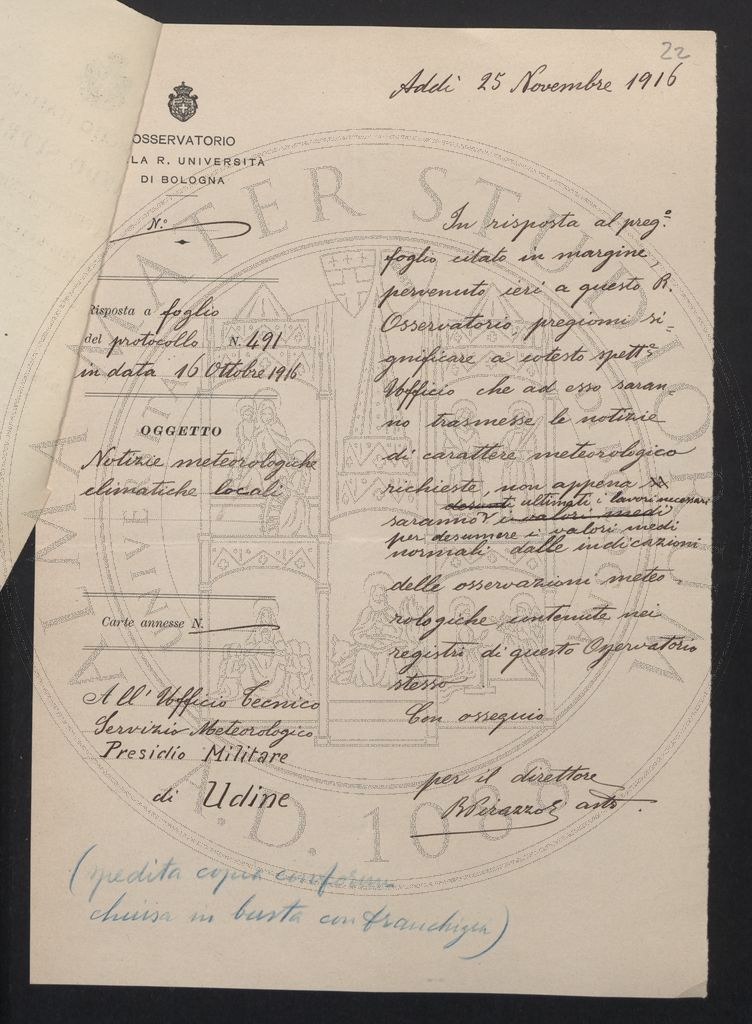 22
Addì 25 Novembre 1916
OSSERVATORIO
LLA R. UNIVERSITÀ
DI BOLOGNA
N.º
Risposta a foglio
del protocollo N. 491
in data 16 Ottobre 1916
OGGETTO
Notizie meteorologiche
climatiche locali
Carte annesse N.
All' Ufficio Tecnico
Servizio Meteorologico
Presidio Militare
di Udine
In risposta al preg.º
foglio citato in margine,
pervenuto ieri a questo R.
Osservatorio, pregiomi si-
gnificare a cotesto spett.º
Ufficio che ad esso saran-
no trasmesse le notizie
di carattere meteorologico
richieste, non appena
ultimati i lavori necessari
saranno i valori medi
per desumere i valori medi
normali dalle indicazioni
delle osservazioni meteo-
rologiche contenute nei
registri di questo Osservatorio
stesso.
Con ossequio
per il direttore
(spedita copia conforme
chiusa in busta con franchigia)
ALMA MATER STUDIORUM
A.D. 1088